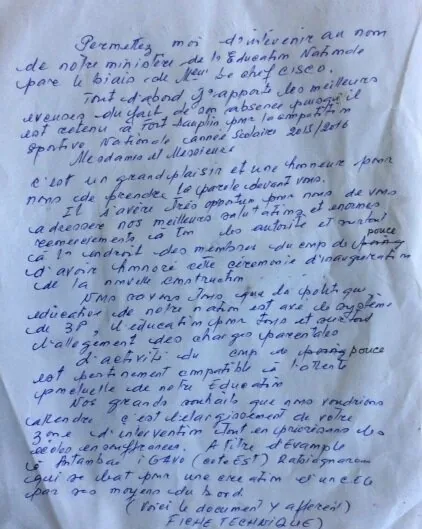 Permettez moi d'intervenir au nom
de notre ministère de la Education Nationale
par le biais de Meur Le chef CISCO.
Tout d'abord J'apporte les meilleurs
excuses du fait de son absence puisqu'il
est retenu à Fort Dauphin pour la compétition
Sportive Nationale année Scolaire 2015/2016
Mesdames et Messieurs
c'est un grand plaisir et une honneur pour
nous de prendre la parole devant vous.
Il s'avère très opportun pour nous de vous
adresser nos meilleurs salutations et énormes
remerciements à tous les autorité et surtout
à l'endroit des membres du cmp de pouce
d'avoir honoré cette cérémonie d'inauguration
de la nouvelle construction
Nous savons tous que la politique
éducative de notre nation est axé les système
de 3P, l'éducation pour tous et surtout
l'allegement des charges parentales
d'activité du cmp de pouce
est pertinement compatible à l'attente
ponctuelle de notre Education
Nos grands souhaits que nous voudrions
attendre c'est l'élargissement de votre
zone d'intervention tout en priorisant les
écoles en souffrance. A titre d'Exemple
à Antambao (côté EST)
qui se bat pour une création d'un CEG
par ses moyens du bord.
(Voici le document y afferent)
FICHE TECHNIQUE)